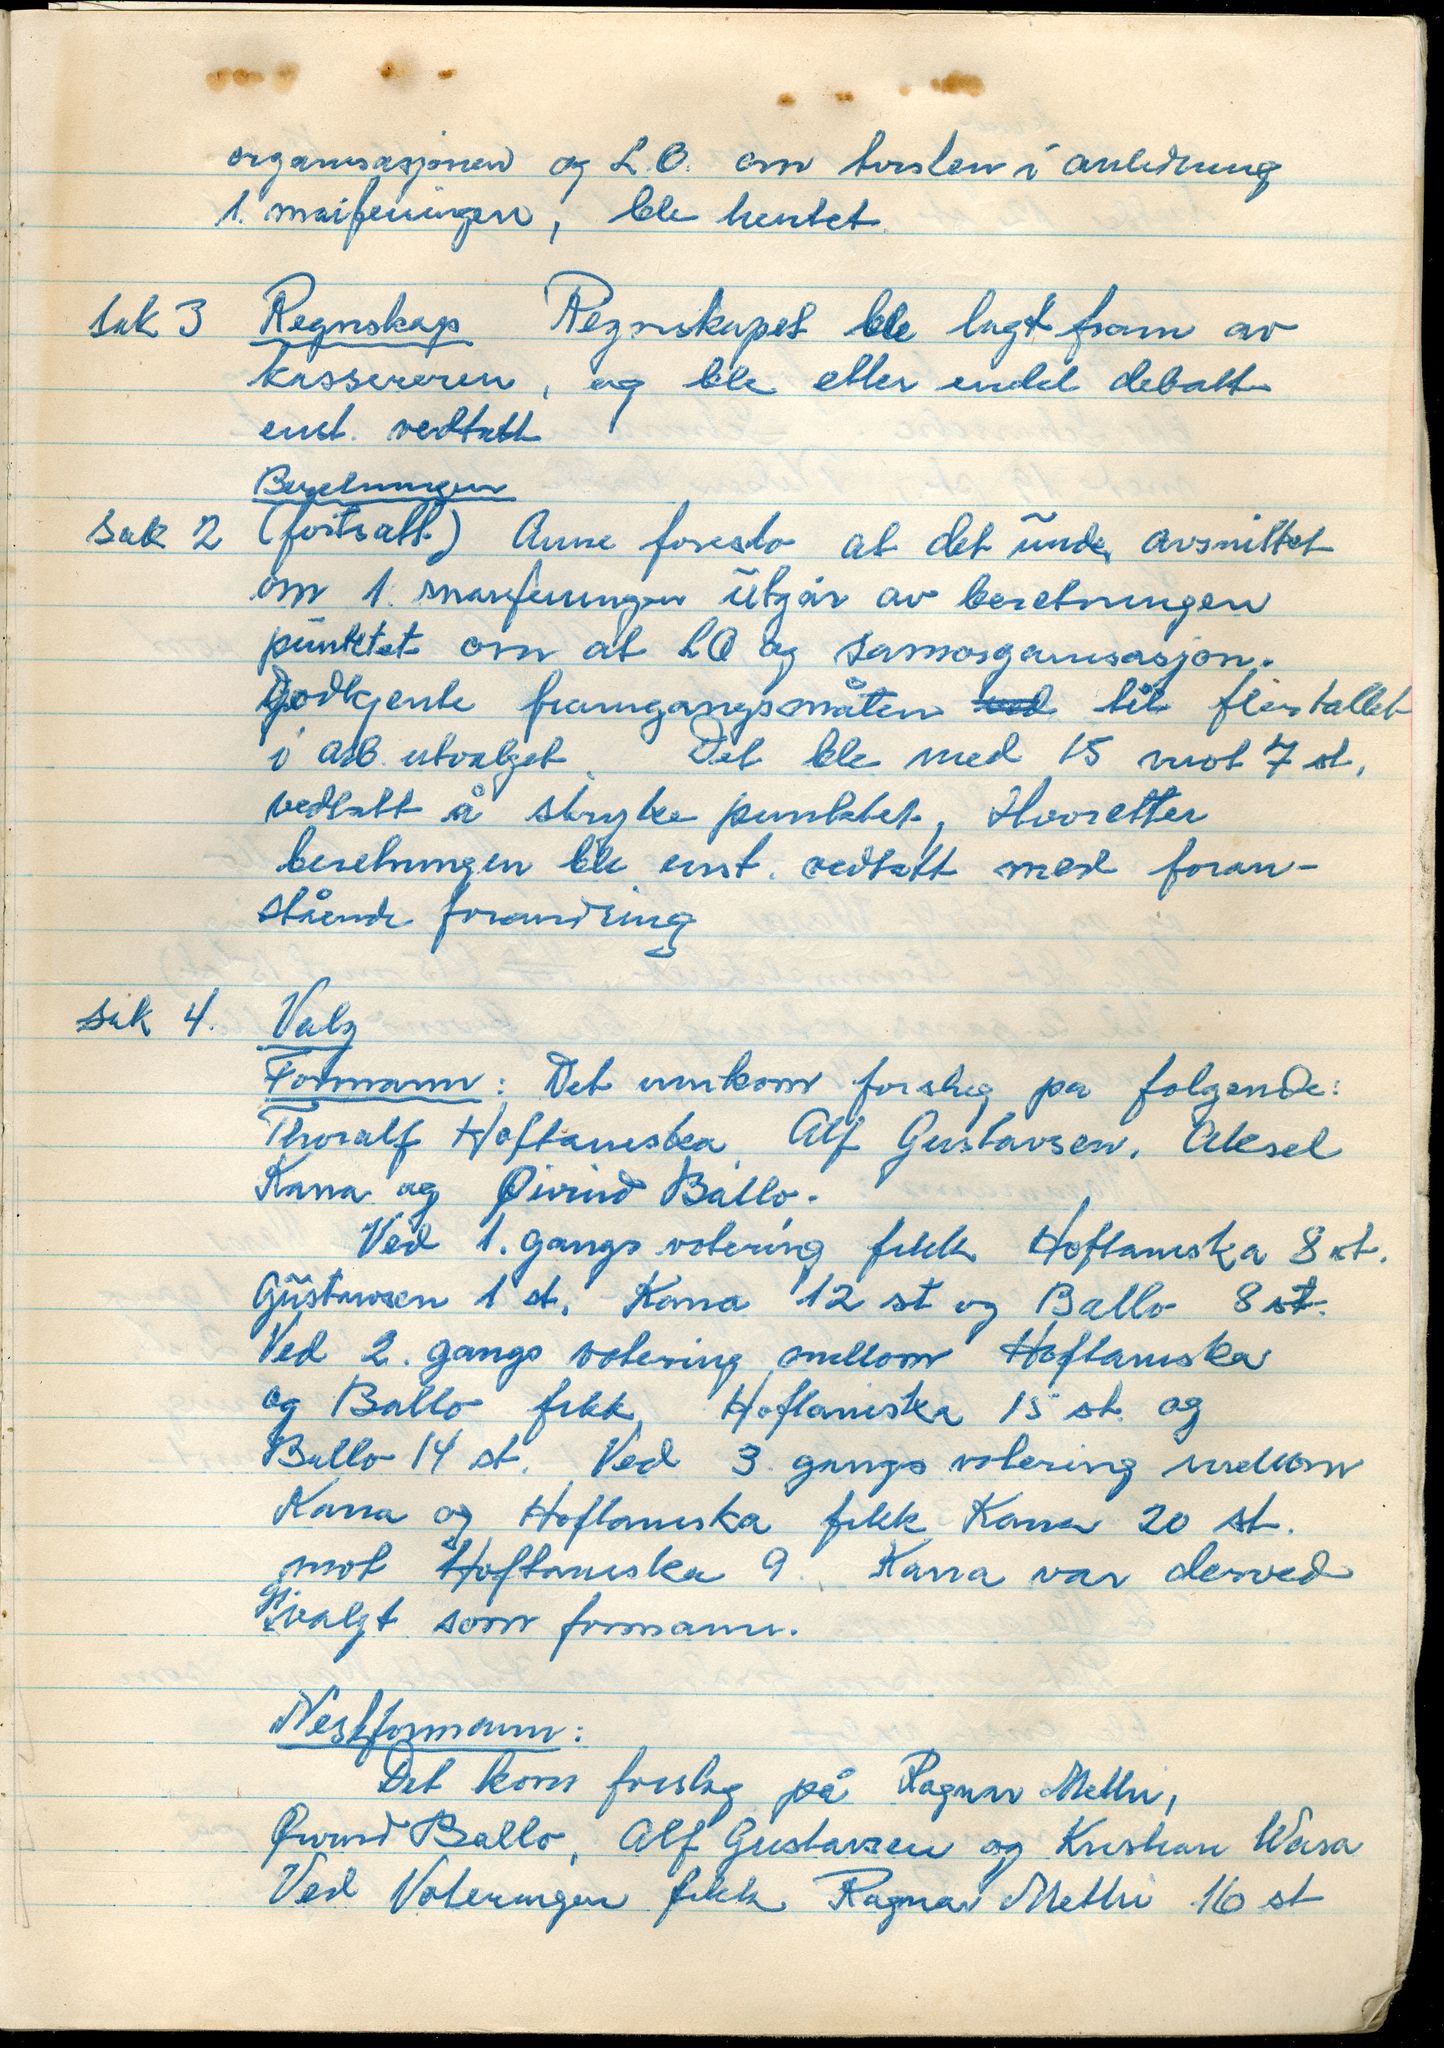 organisasjonen og L.O. om tvisten i anledning
1. maifeiringen, ble hentet.
sak 3 Regnskap Regnskapet ble lagt fram av
kassereren, og ble etter endel debatt
enst. vedtatt
Beretningen
sak 2 (fortsatt) Arne foreslo at det under avsnittet
om 1. maifeiringen utgår av beretningen
punktet om at LO og samorganisasjon.
Godkjente framgangsmåten ved til flertallet
i AB. utvalget. Det ble med 15 mot 7 st.
vedtatt å stryke punktet, Hvoretter
beretningen ble enst. vedtatt med foran-
stående forandring
sak 4. Valg
Formann: Det innkom forslag på følgende:
Thoralf Hoftaniska, Alf Gustavsen, Aksel
Kana og Øivind Ballo.
Ved 1. gangs votering fikk Hoftaniska 8 st.
Gustavsen 1 st. Kana 12 st og Ballo 8 st.
Ved 2. gangs votering mellom Hoftaniska
og Ballo fikk Hoftaniska 15 st. og
Ballo 14 st. Ved 3 gangs votering mellom
Kana og Hoftaniska fikk Kana 20 st.
mot Hoftaniska 9. Kana var derved
valgt som formann.
Nestformann:
Det kom forslag på Ragnar Methi,
Øivind Ballo, Alf Gustavsen og Kristian Wara
Ved Voteringen fikk Ragnar Methi 16 st